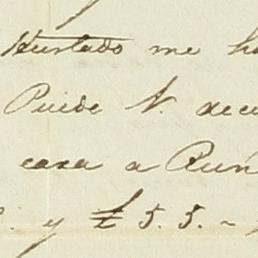 Hurtado me ha
Puede V. decir
casa a Run
y £ 5.5. -